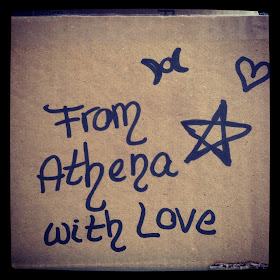 From
Athena
with Love